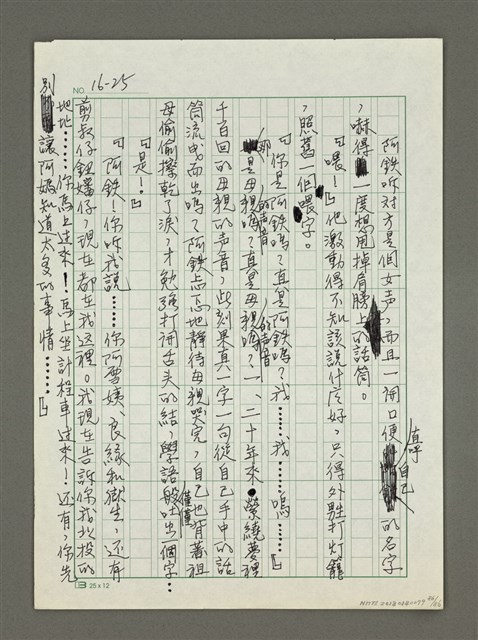 NO. 16-25
阿鉄听対方是個女声，而且一開口便直呼自己的名字
，嚇得一度想甩掉肩膀上的話筒。
『喂！』他激動得不知該說什么好，只得外甥打灯籠
，照舊一個喂字。
『你是阿鉄嗎？真是阿鉄嗎？我……我……嗚……』
那是母親的声音嗎？真是母親的声音嗎？一、二十年來縈繞夢裡
千百回的母親的声音，此刻果真一字一句從自己手中的話
筒流曳而出嗎？阿鉄忘忘地静待母親哭完，自己也背著祖
母偷偷擦乾了淚，才勉强打開舌头的結，學語般吐出僅僅一個字…
『是！』
『阿鉄！你听我說……你阿雪姨、良緣和獄生，还有
剪叔仔鈕嬸仔，現在都在我这裡。我現在告訴你我投的
地址……你馬上过來！馬上坐計程車过來！还有，你先
別讓阿嬤知道太多的事情……』
25×12